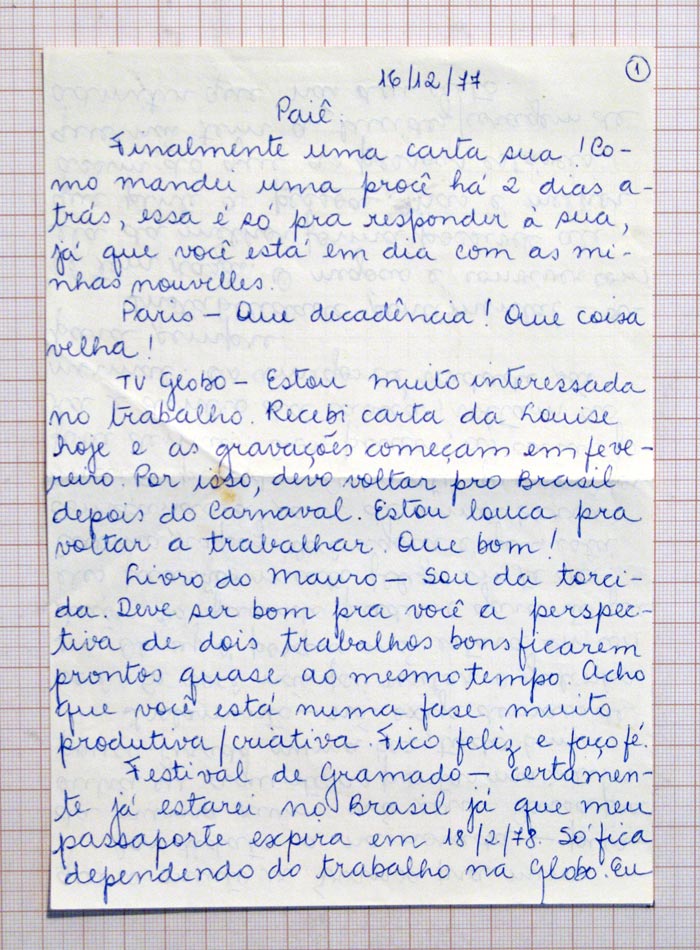 1
16/12/77
Paiê.
Finalmente uma carta sua! Co-
mo mandei uma procê há 2 dias a-
trás, essa é só pra responder à sua,
já que você está em dia com as mi-
nhas nouvelles.
Paris - Que decadência! Que coisa
velha!
TV Globo - Estou muito interessada
no trabalho. Recebi carta da Louise
hoje e as gravações começam em feve-
reiro. Por isso, devo voltar pro Brasil
depois do Carnaval. Estou louca pra
voltar a trabalhar. Que bom!
Livro do Mauro - Sou da torci-
da. Deve ser bom pra você a perspec-
tiva de dois trabalhos bons ficarem
prontos quase ao mesmo tempo. Acho
que você está numa fase muito
produtiva/criativa. Fico feliz e faço fé.
Festival de Gramado - certamen-
te já estarei no Brasil já que meu
passaporte expira em 18/2/78. Só fica
dependendo do trabalho na Globo. Eu